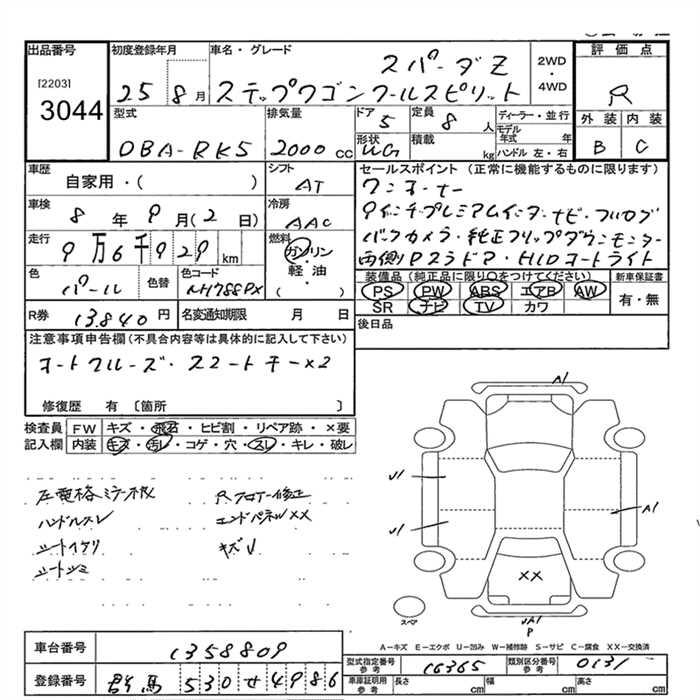 出品番号
[2203]
3044
初度登録年月
25 8月
車名・グレード
スパーダZ
ステップワゴンクールスピリット
2WD
・
4WD
評価点
R
外装 内装
B C
型式
DBA-RK5
排気量
2000cc
ドア
5
形状
WG
定員
8人
積載
kg
ディーラー・並行
モデル年式 年
ハンドル 左・右
車歴
自家用・( )
シフト
AT
車検
8年9月(2日)
冷房
AAC
走行
9万6千929km
燃料
ガソリン
・
軽・油
( )
色
パール
色替
色コード
NH788PX
セールスポイント(正常に機能するものに限ります)
ワンオーナー
9インチプレミアムインターナビ・フルセグ
バックカメラ・純正フリップダウンモニター
両側Pスラドア・HIDオートライト
装備品(純正品に限り○をつけてください)
PS PW ABS エアB AW
SR ナビ TV カワ
新車保証書
有・無
R券
13,840円
名変通知期限 月 日
後日品
注意事項申告欄(不具合内容等は具体的に記入して下さい)
オートクルーズ・スマートキー×2
修復歴 有 〔箇所 〕
検査員 FW キズ・飛石・ヒビ割・リペア跡・×要
記入欄 内装 キズ・汚レ・コゲ・穴・スレ・キレ・破レ
左電格ミラー板
ハンドルスレ
シートイタリ
シートシミ
Rフロアー修正
エンドパネルXX
キズU
A1
U1
U1
A1
XX
UA1
P
スペア
A－キズ E－エクボ U－凹み W－補修跡 S－サビ C－腐食 XX－交換済
車台番号
1358809
登録番号
群馬 530 せ 4986
型式指定番号
参考
16365
類別区分番号
参考
0131
車庫証明用
参考
長さ cm 幅 cm 高さ cm